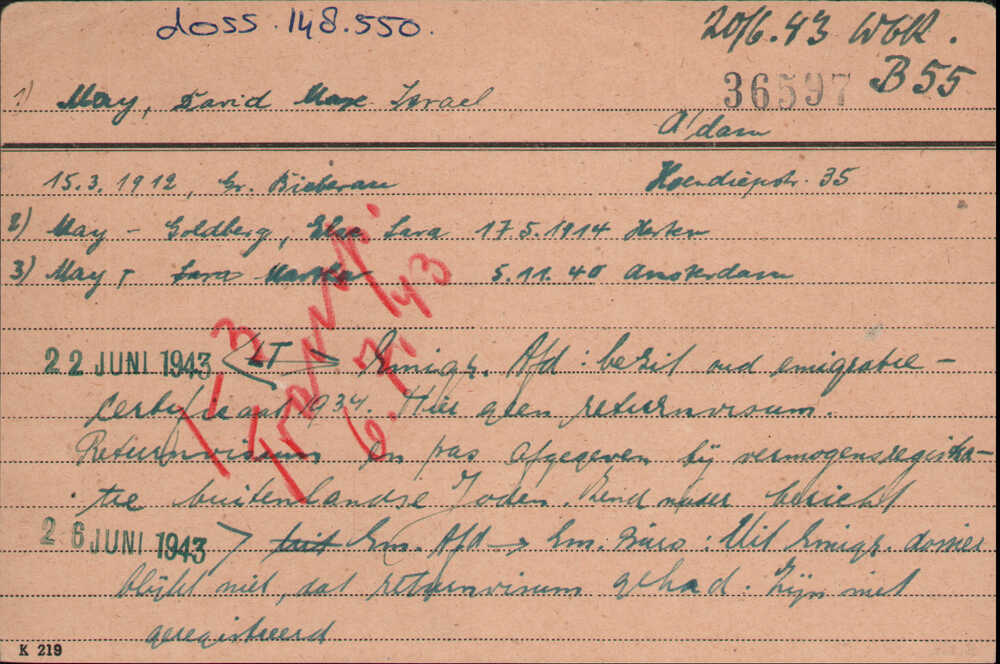 doss. 148.550.
20/6.43 WbK.
36597 B55
1) May, David Max Israel
A'dam
15.3.1912, Gr. Bieberau Hoendiepstr. 35
2) May - Goldberg, Else Sara 17.5.1914 Herten
3) May, Sara Martha 5.11.40 Amsterdam
1-3 Transp. 6.7.43
22 JUNI 1943 LT → Emigr. Afd: bezit oud emigratie-
certificaat 1934. Hier geen retourvisum.
Retourvisum en pas afgegeven bij vermogensregistra-
tie buitenlandse Joden. Zend nader bericht
26 JUNI 1943 > Em. Afd → Em. Büro: Uit Emigr. dossier
blijkt niet, dat retourvisum gehad. Zijn niet
geregistreerd
K 219